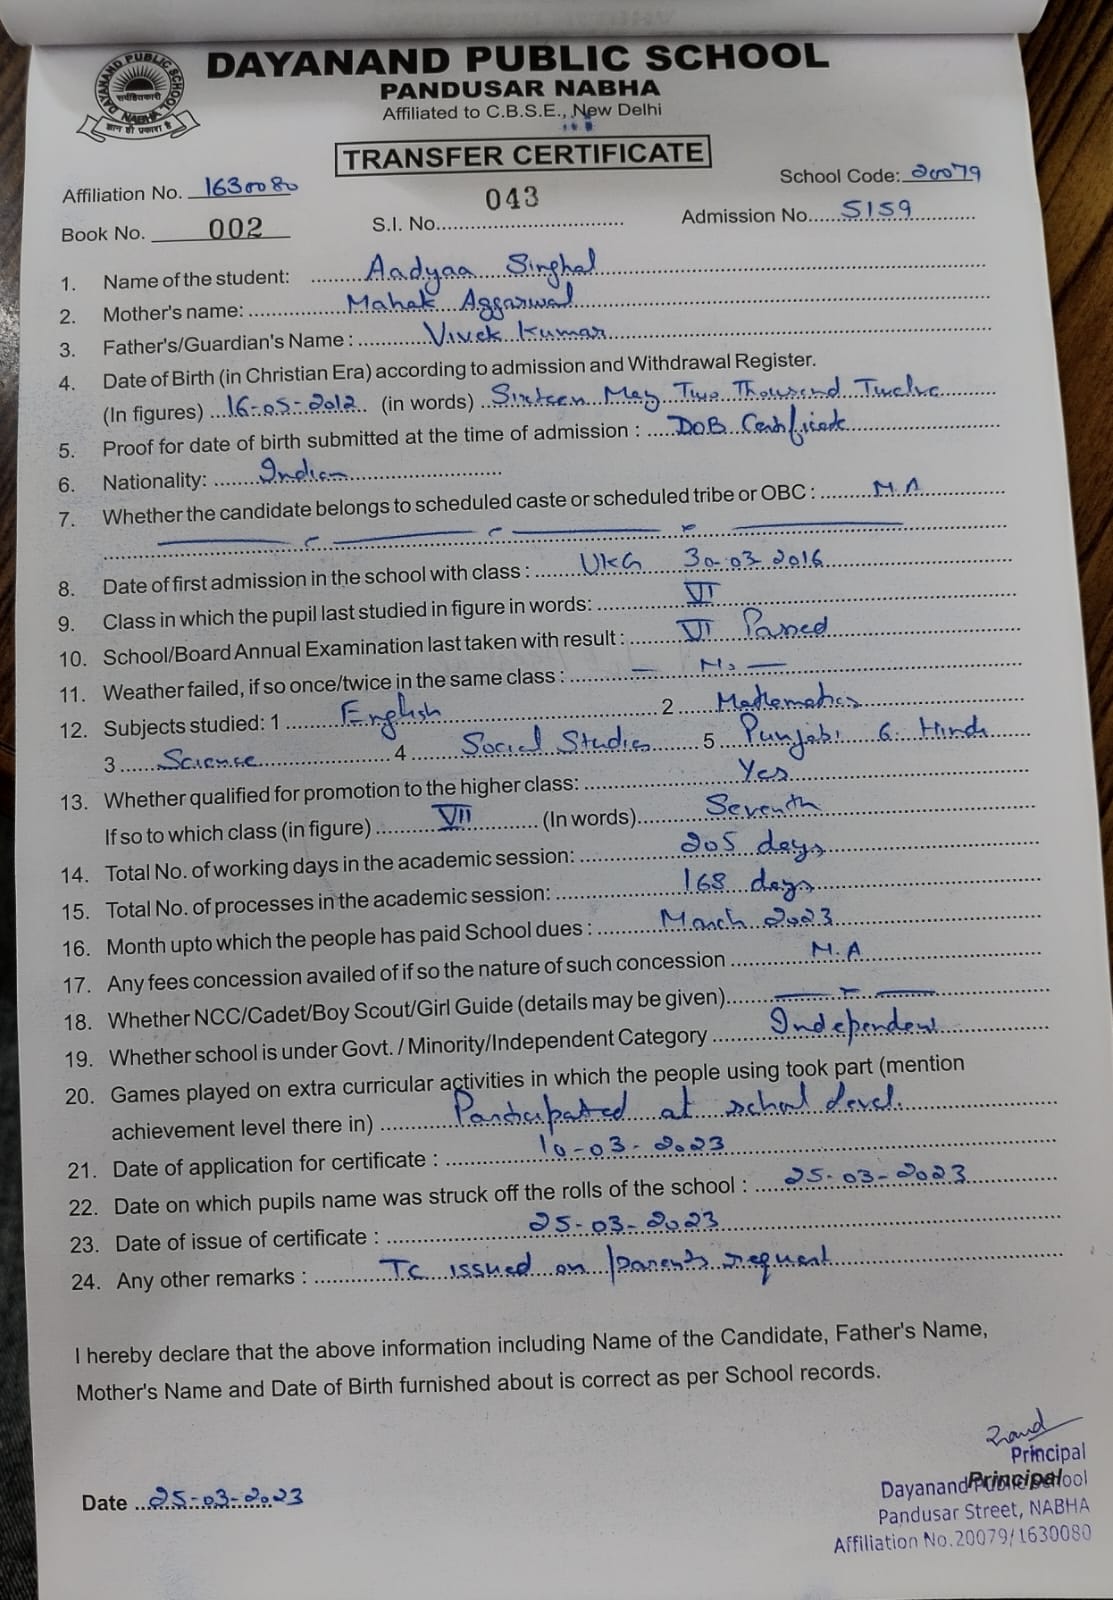 DAYANAND PUBLIC SCHOOL
PANDUSAR NABHA
Affiliated to C.B.S.E., New Delhi
DAYANAND PUBLIC SCHOOL
सर्वहितकारी
NABHA
ज्ञान ही प्रकाश है
TRANSFER CERTIFICATE
Affiliation No. 1630080
School Code: 20079
Book No. 002 S.I. No. 043 Admission No. 5159
1. Name of the student: Aadyaa Singhal
2. Mother's name: Mahak Aggarwal
3. Father's/Guardian's Name : Vivek Kumar
4. Date of Birth (in Christian Era) according to admission and Withdrawal Register.
(In figures) 16-05-2012 (in words) Sixteen May Two Thousand Twelve
5. Proof for date of birth submitted at the time of admission : DOB Certificate
6. Nationality: Indian
7. Whether the candidate belongs to scheduled caste or scheduled tribe or OBC : N.A
8. Date of first admission in the school with class : UKG 30-03-2016
9. Class in which the pupil last studied in figure in words: VI
10. School/Board Annual Examination last taken with result : VI Passed
11. Weather failed, if so once/twice in the same class : — No —
12. Subjects studied: 1 English 2 Mathematics
3 Science 4 Social Studies 5 Punjabi 6. Hindi
13. Whether qualified for promotion to the higher class: Yes
If so to which class (in figure) VII (In words) Seventh
14. Total No. of working days in the academic session: 205 days
15. Total No. of processes in the academic session: 168 days
16. Month upto which the people has paid School dues : March 2023
17. Any fees concession availed of if so the nature of such concession N.A
18. Whether NCC/Cadet/Boy Scout/Girl Guide (details may be given)
19. Whether school is under Govt. / Minority/Independent Category Independent
20. Games played on extra curricular activities in which the people using took part (mention
achievement level there in) Participated at school level.
21. Date of application for certificate : 10-03-2023
22. Date on which pupils name was struck off the rolls of the school : 25-03-2023
23. Date of issue of certificate : 25-03-2023
24. Any other remarks : TC issued on parents request
I hereby declare that the above information including Name of the Candidate, Father's Name,
Mother's Name and Date of Birth furnished about is correct as per School records.
Date 25-03-2023
Principal
Principal
Dayanand Public School
Pandusar Street, NABHA
Affiliation No.20079/1630080